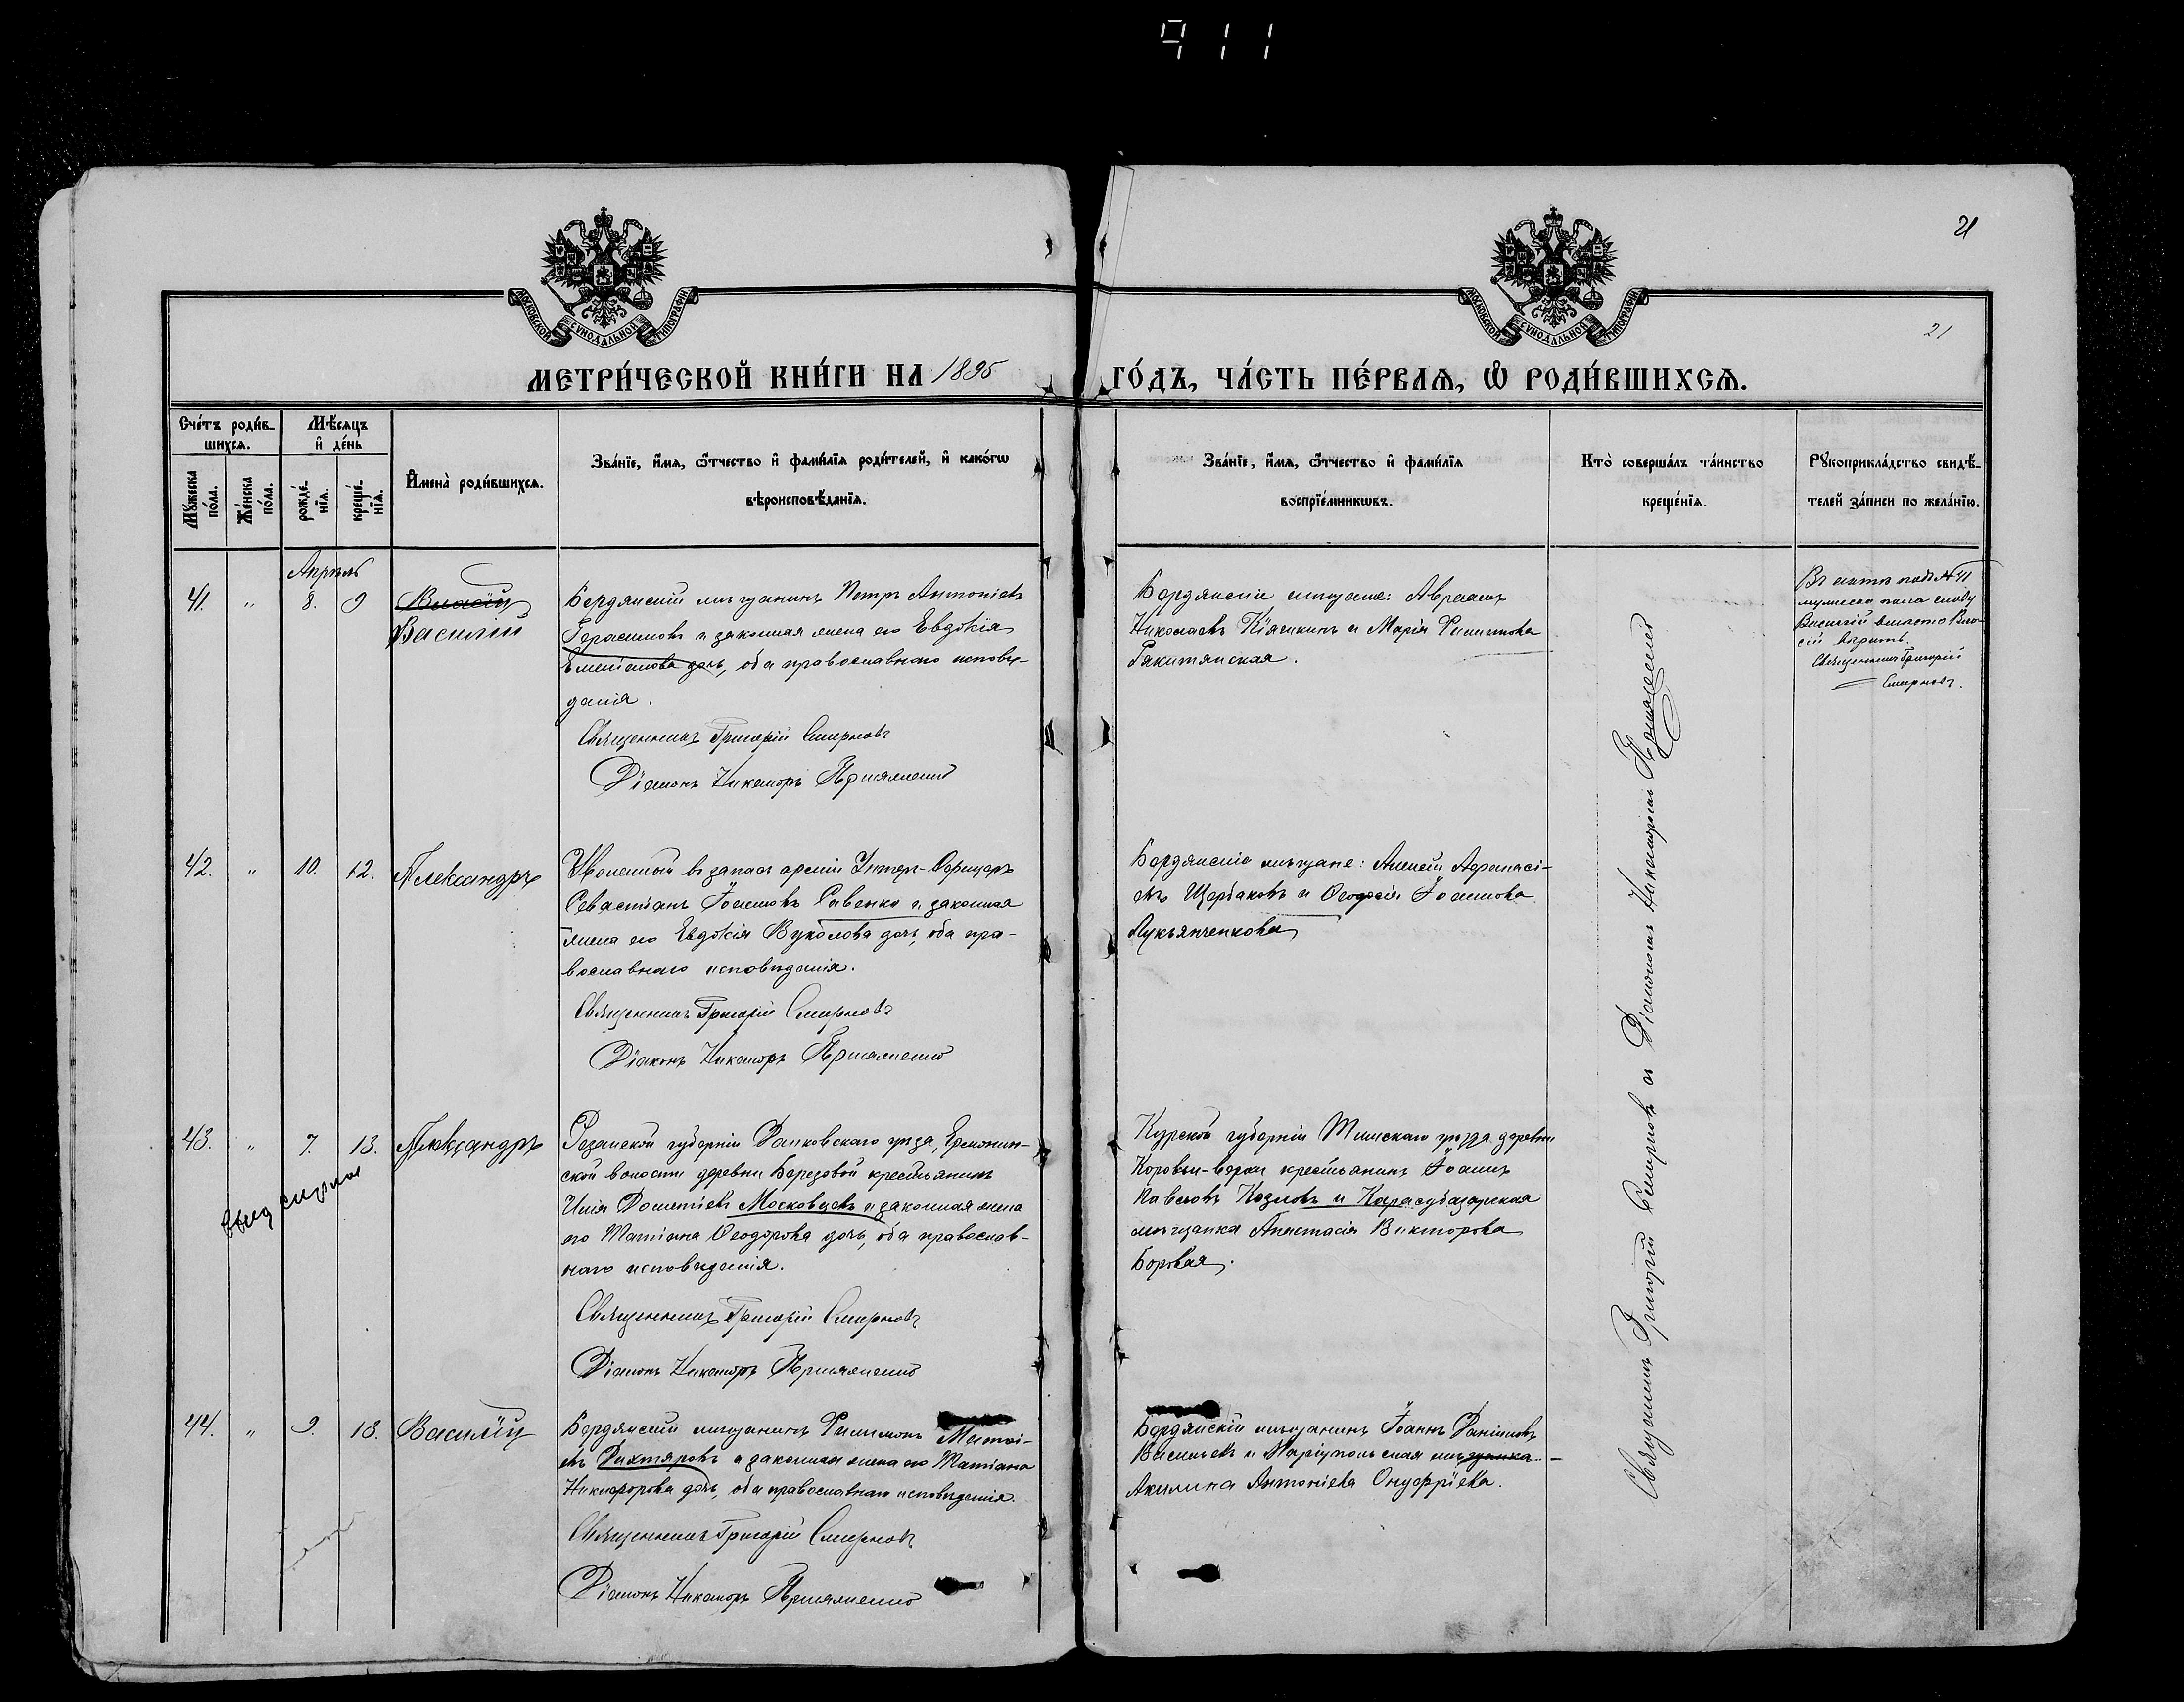 911
21
МОСКОВСКОЙ СУНОДАЛЬНОЙ ТИПОГРАФІИ
МОСКОВСКОЙ СУНОДАЛЬНОЙ ТИПОГРАФІИ
21
МЕТРИ́ЧЕСКОЙ КНИ́ГИ НА 1895 ГО́ДЪ, ЧА́СТЬ ПЕ́РВАѦ, Ѡ҆ РОДИ́ВШИХСѦ.
Сче́тъ роди́в-
шихсѧ.
Мꙋжеска по́ла.
Же́нска по́ла.
Мѣ́сѧцъ
и҆ де́нь
рожде́-
нїѧ.
креще́-
нїѧ.
И҆мена̀ роди́вшихсѧ.
Зва́нїе, и҆́мѧ, ѻ҆́тчество и҆ фами́лїѧ роди́телей, и҆ како́гѡ
вѣроисповѣ́данїѧ.
Зва́нїе, и҆́мѧ, ѻ҆́тчество и҆ фами́лїѧ
воспрїе́мникѡвъ.
Кто̀ соверша́лъ та́инство
креще́нїѧ.
Рꙋкоприкла́дство свидѣ́-
телей за́писи по жела́нїю.
Апрѣль
41. " 8. 9 Власій
Василій
Бердянскій мѣщанинъ Петръ Антоніевъ
Герасимовъ и законная жена его Евдокія
Емеліанова дочь, оба православнаго исповѣ-
данія.
Священникъ Григорій Смирновъ
Діаконъ Никаноръ
Бердянскіе мѣщане: Авраамъ
Николаевъ и Марія Филиппова
Ракитянская.
Въ актѣ подъ №41
мужеска пола слову
Василій вмѣсто Вла-
сій вѣрить.
Священникъ Григорій
Смирновъ.
42. " 10. 12. Александръ
Уволенный въ запасъ арміи Унтеръ-Офицеръ
Севастіанъ Іоанновъ Савенко и законная
жена его Евдокія Вуколова дочь, оба пра-
вославнаго исповѣданія.
Священникъ Григорій Смирновъ
Діаконъ Никаноръ
Бердянскіе мѣщане: Алексій Афанасі-
евъ Щербаковъ и Ѳеодосія Іоаннова
Лукьянченкова
43. " 7. 13. Александръ
Рязанской губерніи Данковскаго уѣзда,
ской волости деревни Березовой крестьянинъ
Илія Дометіевъ Московцевъ и законная жена
его Татіана Ѳеодорова дочь, оба православ-
наго исповѣданія.
Священникъ Григорій Смирновъ
Діаконъ Никаноръ
Курской губерніи Тимскаго уѣзда деревни
крестьянинъ Іоаннъ
Павловъ Козловъ и Карасубазарская
мѣщанка Анастасія Викторова
Боровая.
44. " 9. 13. Василій
Бердянскій мѣщанинъ Филимонъ
евъ Дихтяровъ и законная жена его Татіана
Никифорова дочь, оба православнаго исповѣданія.
Священникъ Григорій Смирновъ
Діаконъ Никаноръ
Бердянскій мѣщанинъ Іоаннъ Даніиловъ
Васильевъ и Маріупольская мѣщанка
Акилина Антоніева Онуфріева.
Священникъ Григорій Смирновъ съ Діакономъ Никаноромъ